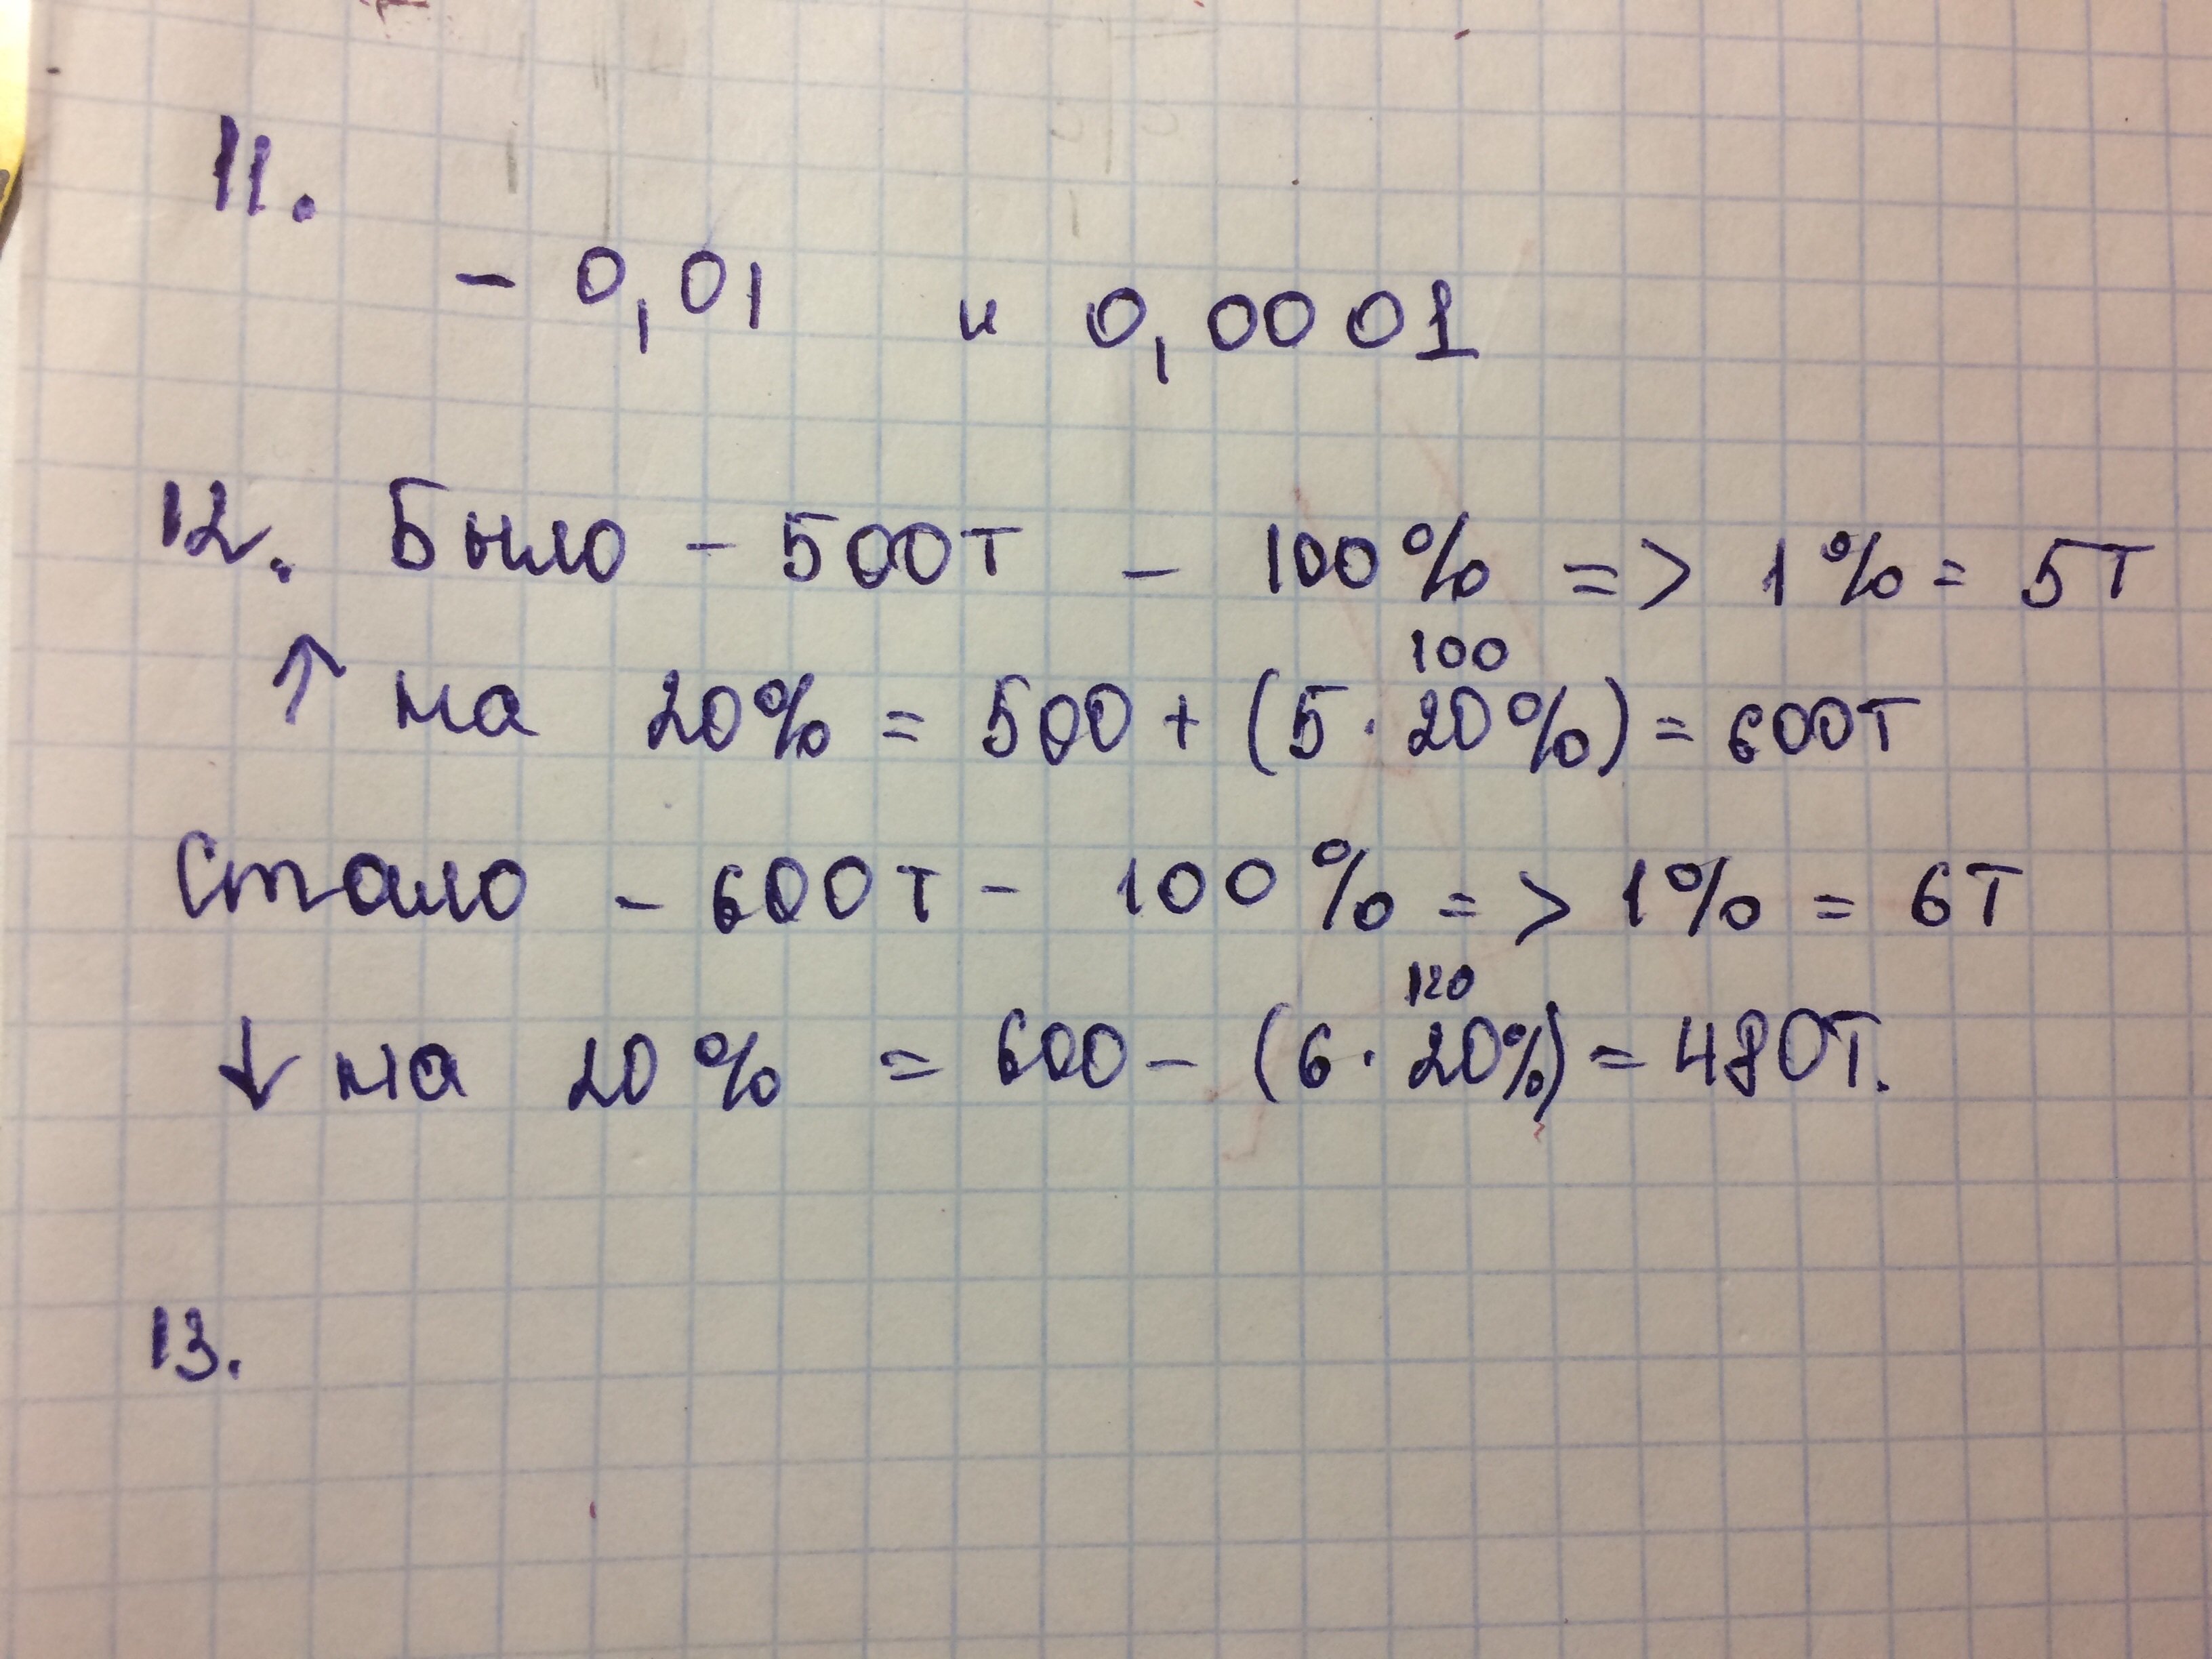 11.
- 0,01 и 0,0001
12. Было - 500т - 100% => 1% = 5т
100
↑ на 20% = 500 + (5 · 20%) = 600т
Стало - 600т - 100% => 1% = 6т
120
↓ на 20% = 600 - (6 · 20%) = 480т.
13.